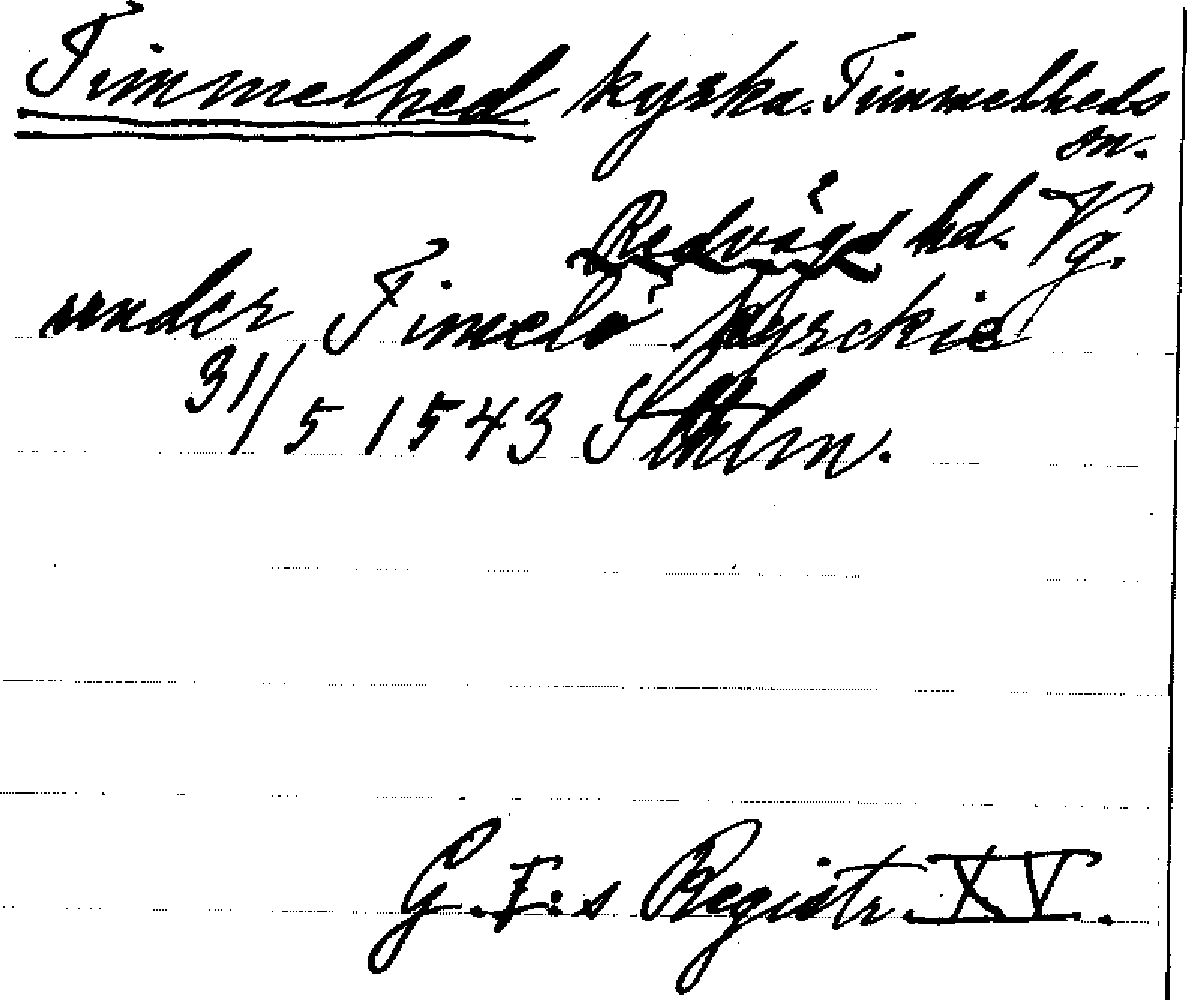 Timmelhed kyrka. Timmelheds
sn.
Redvägs hd. Vg.
under Timelö kyrckie
31/5 1543 Sthlm.
G. I:s Registr. XV.